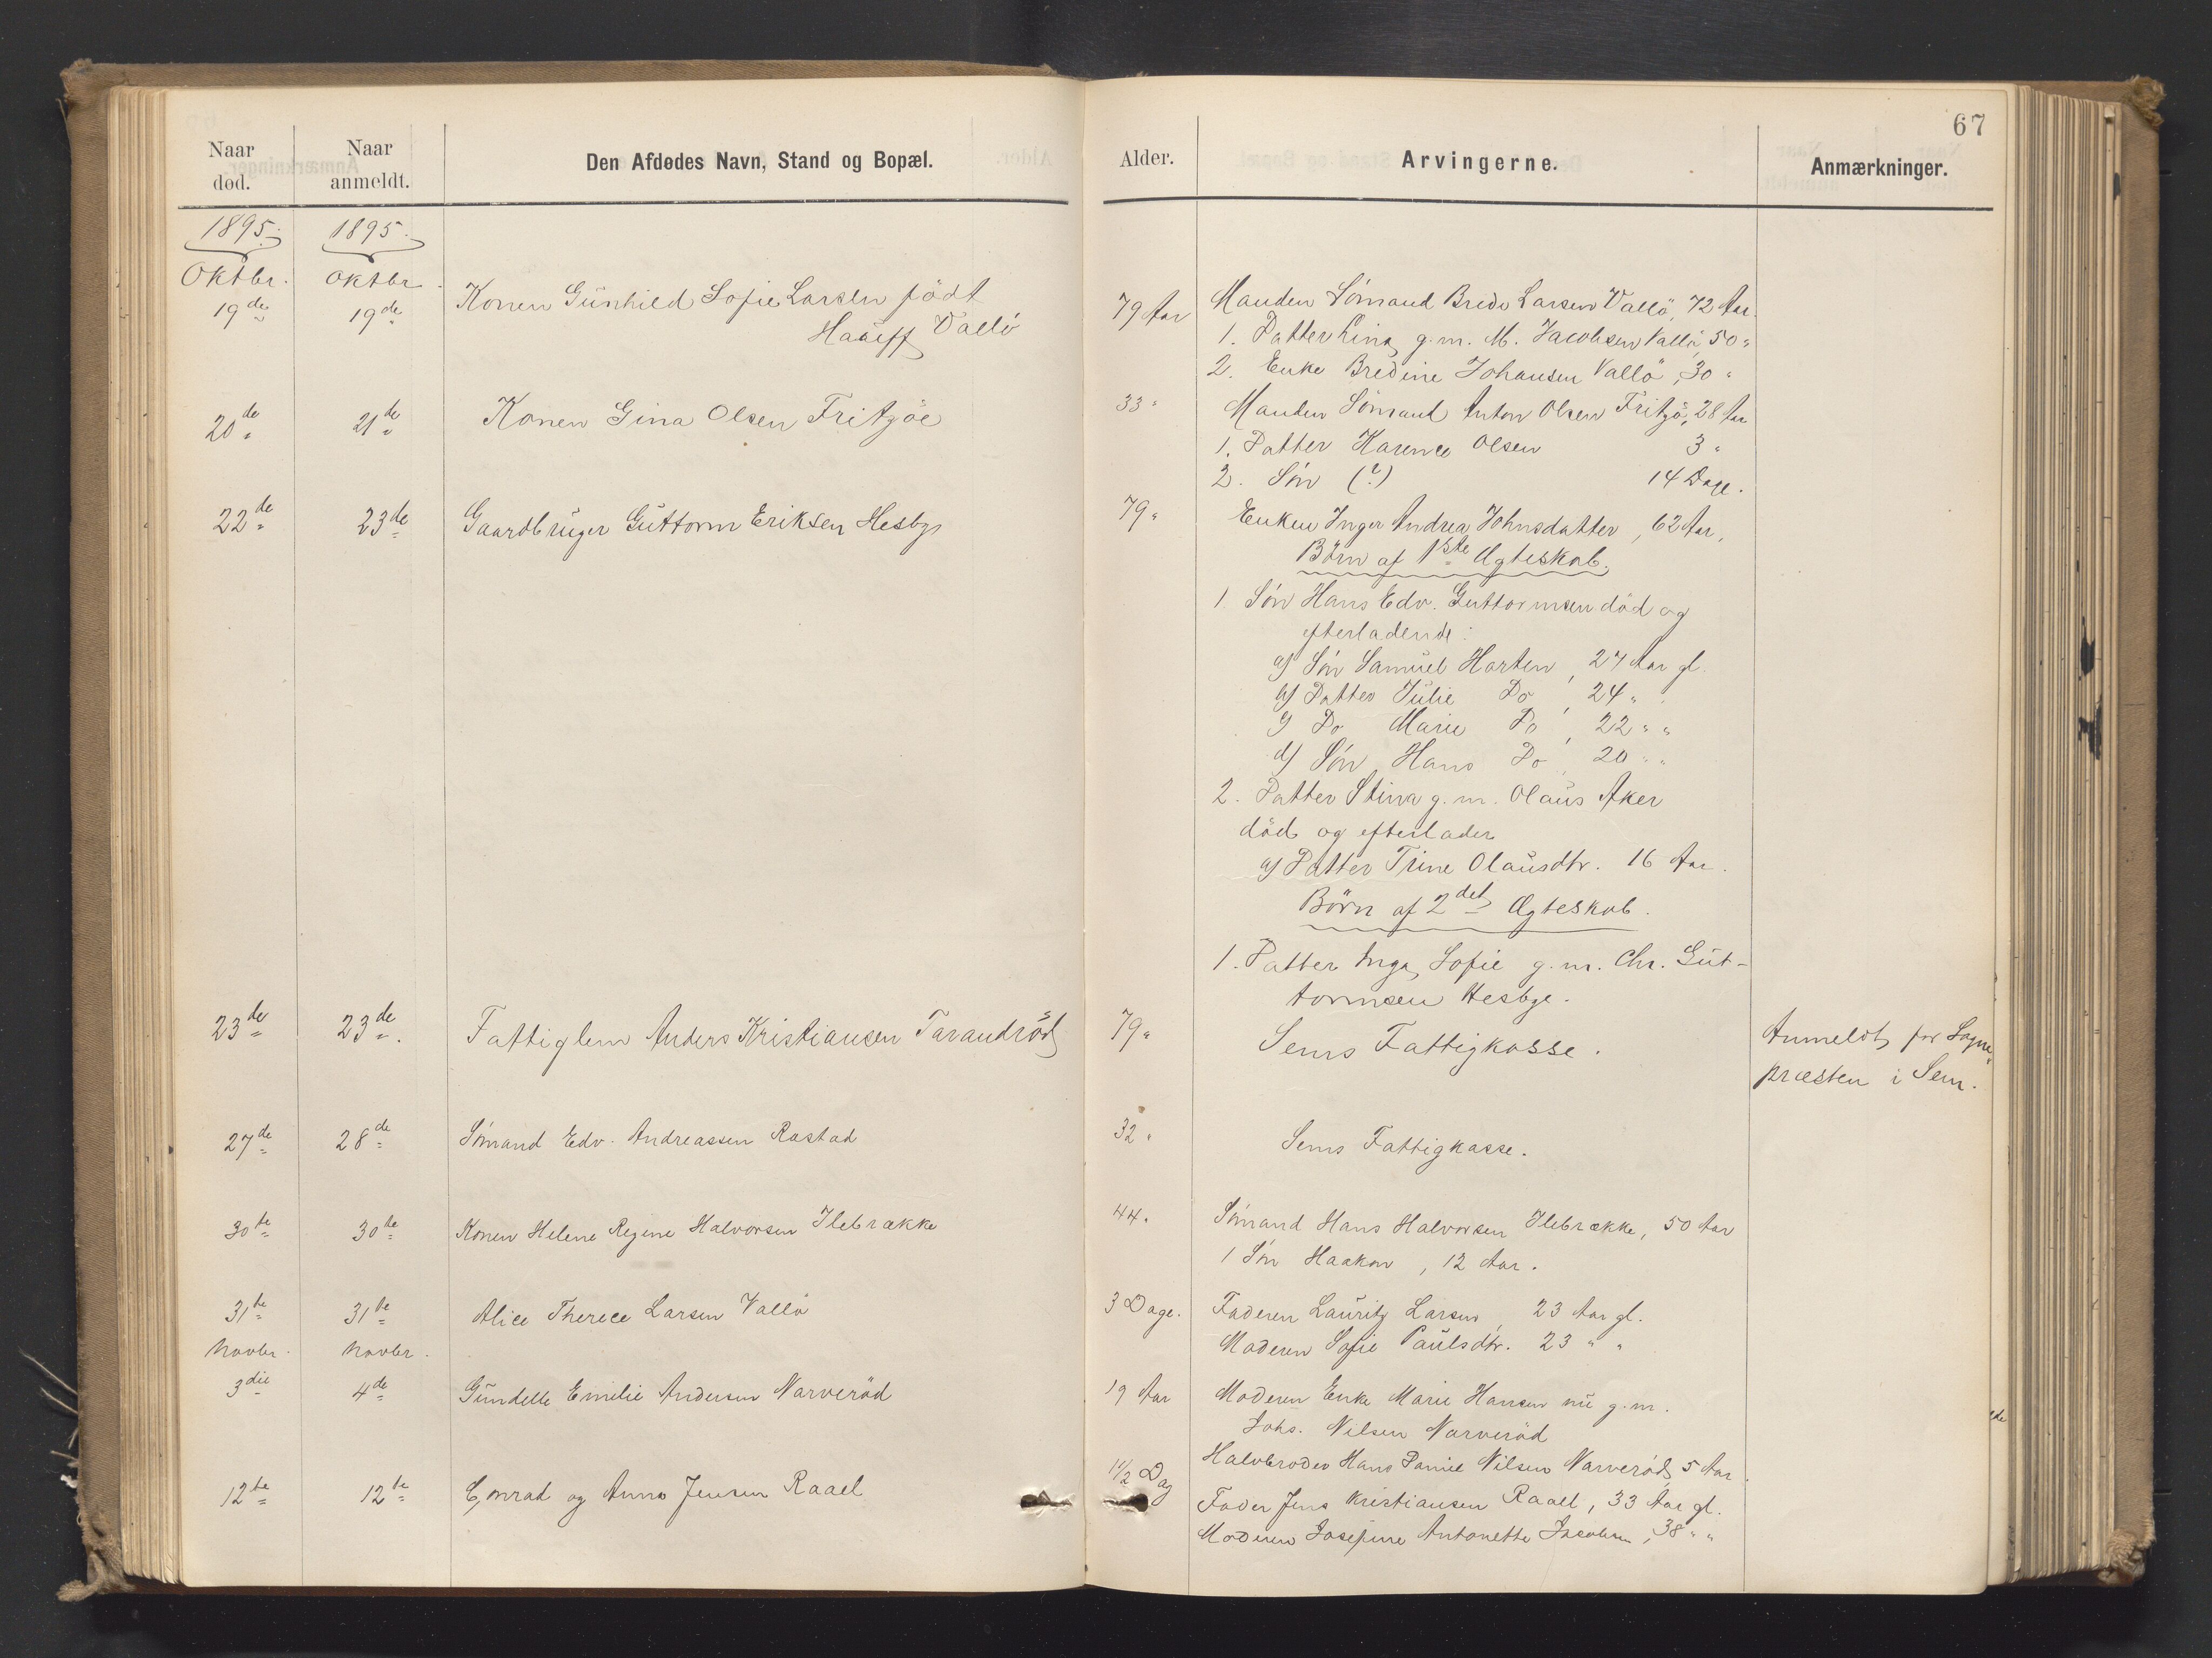 67
Naar død.
Naar anmeldt.
Den Afdødes Navn, Stand og Bopæl.
Alder.
Arvingerne.
Anmærkninger.
1895. 1895.
Oktbr. Oktbr.
19de 19de Konen Gunhild Sofie Larsen født
Haaeff Vallö
79 Aar
Manden Sömand Brede Larsen Vallö, 72 Aar.
1. Datter Lina g.m. M. Jacobsen Vallö, 50 "
2. Enke Bredine Johansen Vallö, 30 "
20de 21de Konen Gina Olsen Fritzöe
33 "
Manden Sömand Anton Olsen Fritzö, 28 Aar
1. Datter Karence Olsen 3 "
2. Sön (?) 14 Dage.
22de 23de Gaardbruger Guttorm Eriksen Hesby
79 "
Enken Inger Andrea Johnsdatter, 62 Aar,
Börn af 1ste Ægteskab.
1 Sön Hans Edv. Guttormsen död og
efterladende:
a) Sön Samuel Horten, 27 Aar gl.
b) Datter Julie Do, 24 "
c) Do Marie Do, 22 " "
d) Sön Hans Do, 20 " "
2. Datter Stina g.m. Olaus Aker
död og efterlader
a) Datter Trine Olausdtr. 16 Aar.
Börn af 2det Ægteskab.
1. Datter Inga Sofie g.m. Chr. Gut-
tormsen Hesbye.
23de 23de. Fattiglem Anders Kristiansen Tarandröd
79 "
Sems Fattigkasse.
Anmeldt for Sogne-
præsten i Sem.
27de 28de Sömand Edv. Andreassen Rastad
32 "
Sems Fattigkasse.
30te 30te Konen Helene Regine Halvorsen Ilebrække
44 "
Sömand Hans Halvorsen Ilebrække, 50 Aar
1 Sön Haakon, 12 Aar.
31te 31te Alice Therece Larsen Vallö
3 Dage.
Faderen Lauritz Larsen, 23 Aar gl.
Moderen Sofie Paulsdtr. 23 " "
Novbr. Novbr.
3die 4de Gundelle Emilie Andersen Narveröd
19 Aar
Moderen Enke Marie Hansen nu g.m.
Johs. Nilsen Narveröd
Halvbroder Hans Daniel Nilsen Narveröd, 5 Aar.
12te 12te Conrad og Anna Jensen Raael
1 1/2 Dag
Fader Jens Kristiansen Raael, 33 Aar gl.
Moderen Josefine Antonette Jacobsen, 38 " "